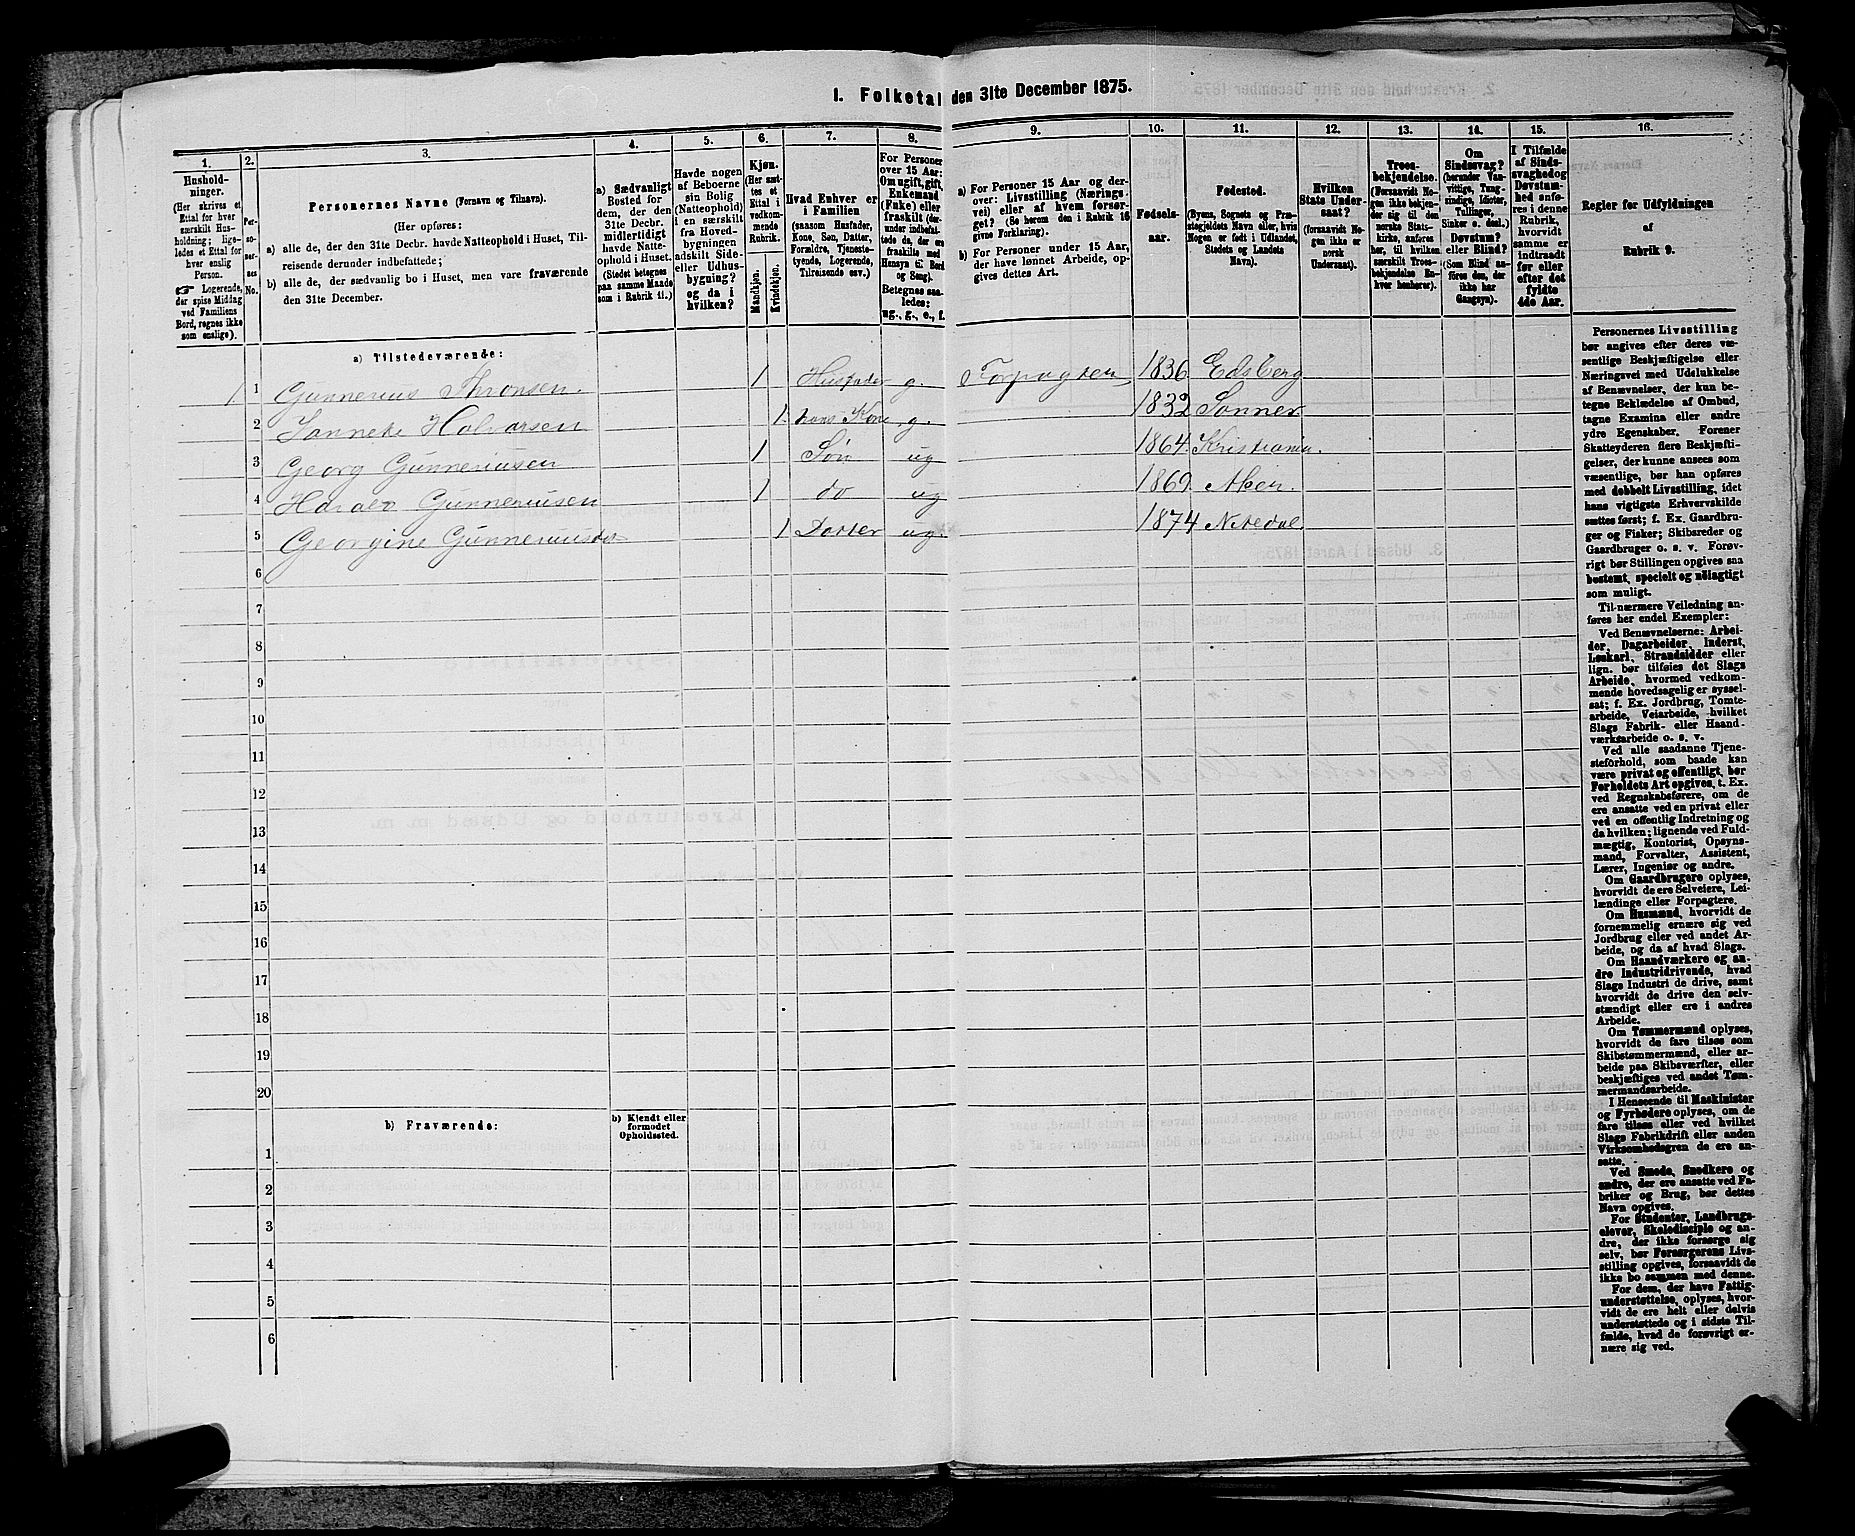 1. Folketal den 31te December 1875.
1.
Hushold-
ninger.
(Her skrives et
Ettal for hver
særskilt Hus-
holdning; lige-
ledes et Ettal for
hver enslig
Person.
☞ Logerende,
der spise Middag
ved Familiens
Bord, regnes ikke
som enslige).
2.
Per-
so-
ner-
nes
No.
3.
Personernes Navne (Fornavn og Tilnavn).
(Her opføres:
a) alle de, der den 31te Decbr. havde Natteophold i Huset, Til-
reisende derunder indbefattede;
b) alle de, sædvanlig bo i Huset, men vare fraværende
den 31te December.
4.
a) Sædvanligt
Bosted for
dem, der den
31te Decbr.
midlertidigt
havde Natte-
ophold i Huset.
(Stedet betegnes
paa samme Maade
som i Rubrik 11.)
5.
Havde nogen
af Beboerne
sin Bolig
(Natteophold)
i en særskilt
fra Hoved-
bygningen
adskilt Side-
eller Udhus-
bygning?
og da i
hvilken?
6.
Kjøn.
(Her sæt-
tes et
Ettal i
vedkom-
mende
Rubrik.
Mandkjøn.
Kvindekjøn.
7.
Hvad Enhver er
i Familien
(saasom Husfader,
Kone, Søn, Datter,
Forældre, Tjeneste-
tyende, Logerende,
Tilreisende osv.)
8.
For Personer
over 15 Aar:
Om ugift, gift,
Enkemand
(Enke) eller
fraskilt (der-
under indbefat-
tede de, der ere
fraskilte med
Hensyn til Bord
og Seng).
Betegnes saa-
ledes:
ug., g., e., f.
9.
a) For Personer 15 Aar og der-
over: Livsstilling (Nærings-
vei) eller af hvem forsør-
get? (Se herom den i Rubrik 16
givne Forklaring).
b) For Personer under 15 Aar,
der have lønnet Arbeide, op-
gives dettes Art.
10.
Fødsels-
aar.
11.
Fødested.
(Byens, Sognets og Præ-
stegjeldets Navn eller, hvis
Nogen er født i Udlandet,
Stedets og Landets
Navn).
12.
Hvilken
Stats Under-
saat?
(forsaavidt No-
gen ikke er
norsk
Undersaat).
13.
Troes-
bekjendelse.
(Forsaavidt No-
gen ikke bekjen-
der sig til den
norske Stats-
kirke, anføres
her, til hvilken
særskilt Troes-
bekjendelse En-
hver henhører).
14.
Om
Sindssvag?
(herunder Van-
vittige, Tung-
sindige, Idioter,
Tullinger,
Sinker o. desl.)
Døvstum?
eller Blind?
(Som Blind an-
føres den, der
ikke har
Gangsyn).
15.
I Tilfælde
af Sinds-
svaghed og
Døvstum-
hed anfø-
res i denne
Rubrik,
hvorvidt
samme er
indtraadt
før eller
efter det
fyldte
4de Aar.
16.
Regler for Udfyldningen
af
Rubrik 9.
a) Tilstedeværende:
1 1 Gunnerius Thronsen. 1 Husfader g. Forpagter 1836 Edsberg
2 Hal­vorsen 1 hans Kone g. 1832 Sonner
3 Georg Gunneriusen 1 Søn ug 1864. Kristiania.
4 Harald Gunneriusen 1 do ug 1869. Aker.
5 Georgine Gunneriusdo 1 Dotter ug. 1874 Nitedal
6
7
8
9
10
11
12
13
14
15
16
17
18
19
20
b) Fraværende:
b) Kjendt eller
formodet
Opholdssted.
1
2
3
4
5
6
Personernes Livsstilling
bør angives efter deres væ-
sentlige Beskjæftigelse eller
Næringsvei med Udelukkelse
af Benævnelser, der kun be-
tegne Beklædelse af Ombud,
tagne Examina eller andre
ydre Egenskaber. Forener
Skatteyderen flere Beskjæfti-
gelser, der kunne ansees som
væsentlige, bør han opføres
med dobbelt Livsstilling, idet
hans vigtigste Erhvervskilde
sættes først; f. Ex. Gaardbru-
ger og Fisker; Skibsreder og
Gaardbruger o. s. v. Forøv-
rigt bør Stillingen opgives saa
bestemt, specielt og nøiagtigt
som muligt.
Til nærmere Veiledning an-
føres her endel Exempler:
Ved Benævnelserne: Arbei-
der, Dagarbeider, Inderst,
Løskarl, Strandsidder eller
lign. bør tilføies det Slags
Arbeide, hvormed vedkom-
mende hovedsagelig er syssel-
sat; f. Ex. Jordbrug, Tomte-
arbeide, Veiarbeide, hvilket
Slags Fabrik- eller Haand-
værksarbeide o. s. v.
Ved alle saadanne Tjene-
steforhold, som baade kan
være privat og offentligt, bør
Forholdets Art opgives, t. Ex.
ved Regnskabsførere, om de
ere ansatte ved en privat eller
ved en offentlig Indretning og
da hvilken; lignende ved Fuld-
mægtig, Kontorist, Opsyns-
mand, Forvalter, Assistent,
Lærer, Ingeniør og andre.
Om Gaardbrugere oplyses,
hvorvidt de ere Selveiere, Lei-
lændinge eller Forpagtere.
Om Husmænd, hvorvidt de
fornemmelig ernære sig ved
Jordbrug eller ved andet Ar-
beide, og da af hvad Slags.
Om Haandværkere og an-
dre Industridrivende, hvad
Slags Industri de drive, samt
hvorvidt de drive den selv-
stændigt eller ere i andres
Arbeide.
Om Tømmermænd oplyses,
hvorvidt de fare tilsøs som
Skibstømmermænd, eller ar-
beide paa Skibsværfter, eller
beskjæftiges ved andet Tøm-
mermandsarbeide.
I Henseende til Maskinister
og Fyrbødere oplyses, om de
fare tilsøs eller ved hvilket
Slags Fabrikdrift eller anden
Virksomhedsgren de ere an-
satte.
Ved Smede, Snedkere og
andre, der ere ansatte ved Fa-
briker og Brug, bør dettes
Navn opgives.
For Studenter, Landbrugs-
elever, Skoledisciple og an-
dre, der ikke forsørge sig
selv, bør Forsørgerens Livs-
stilling opgives, forsaavidt de
ikke bo sammen med denne.
For dem, der have Fattig-
understøttelse, oplyses, hvor-
vidt de ere helt eller delvis
understøttede og i sidste Til-
fælde, hvad de forøvrigt er-
nære sig ved.